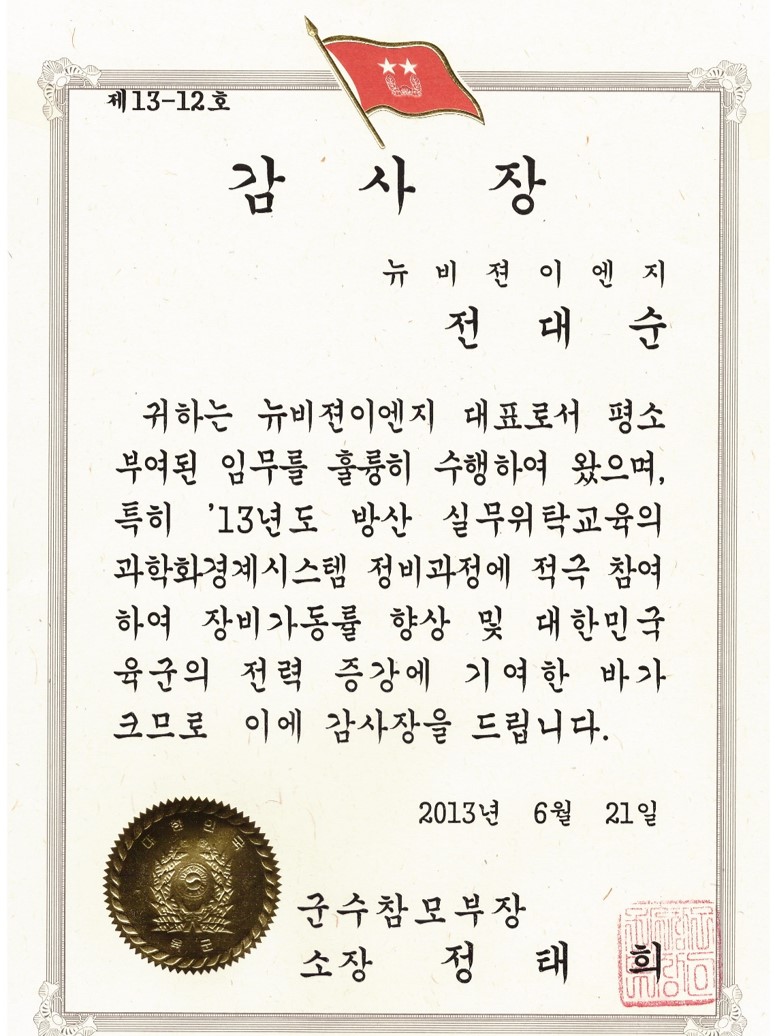 제13-12호
감 사 장
뉴 비 젼 이 엔 지
전 대 순
귀하는 뉴비젼이엔지 대표로서 평소
부여된 임무를 훌륭히 수행하여 왔으며,
특히 '13년도 방산 실무위탁교육의
과학화경계시스템 정비과정에 적극 참여
하여 장비가동률 향상 및 대한민국
육군의 전력 증강에 기여한 바가
크므로 이에 감사장을 드립니다.
2013년 6월 21일
대한민국
육군
군수참모부장
소장 정 태 희